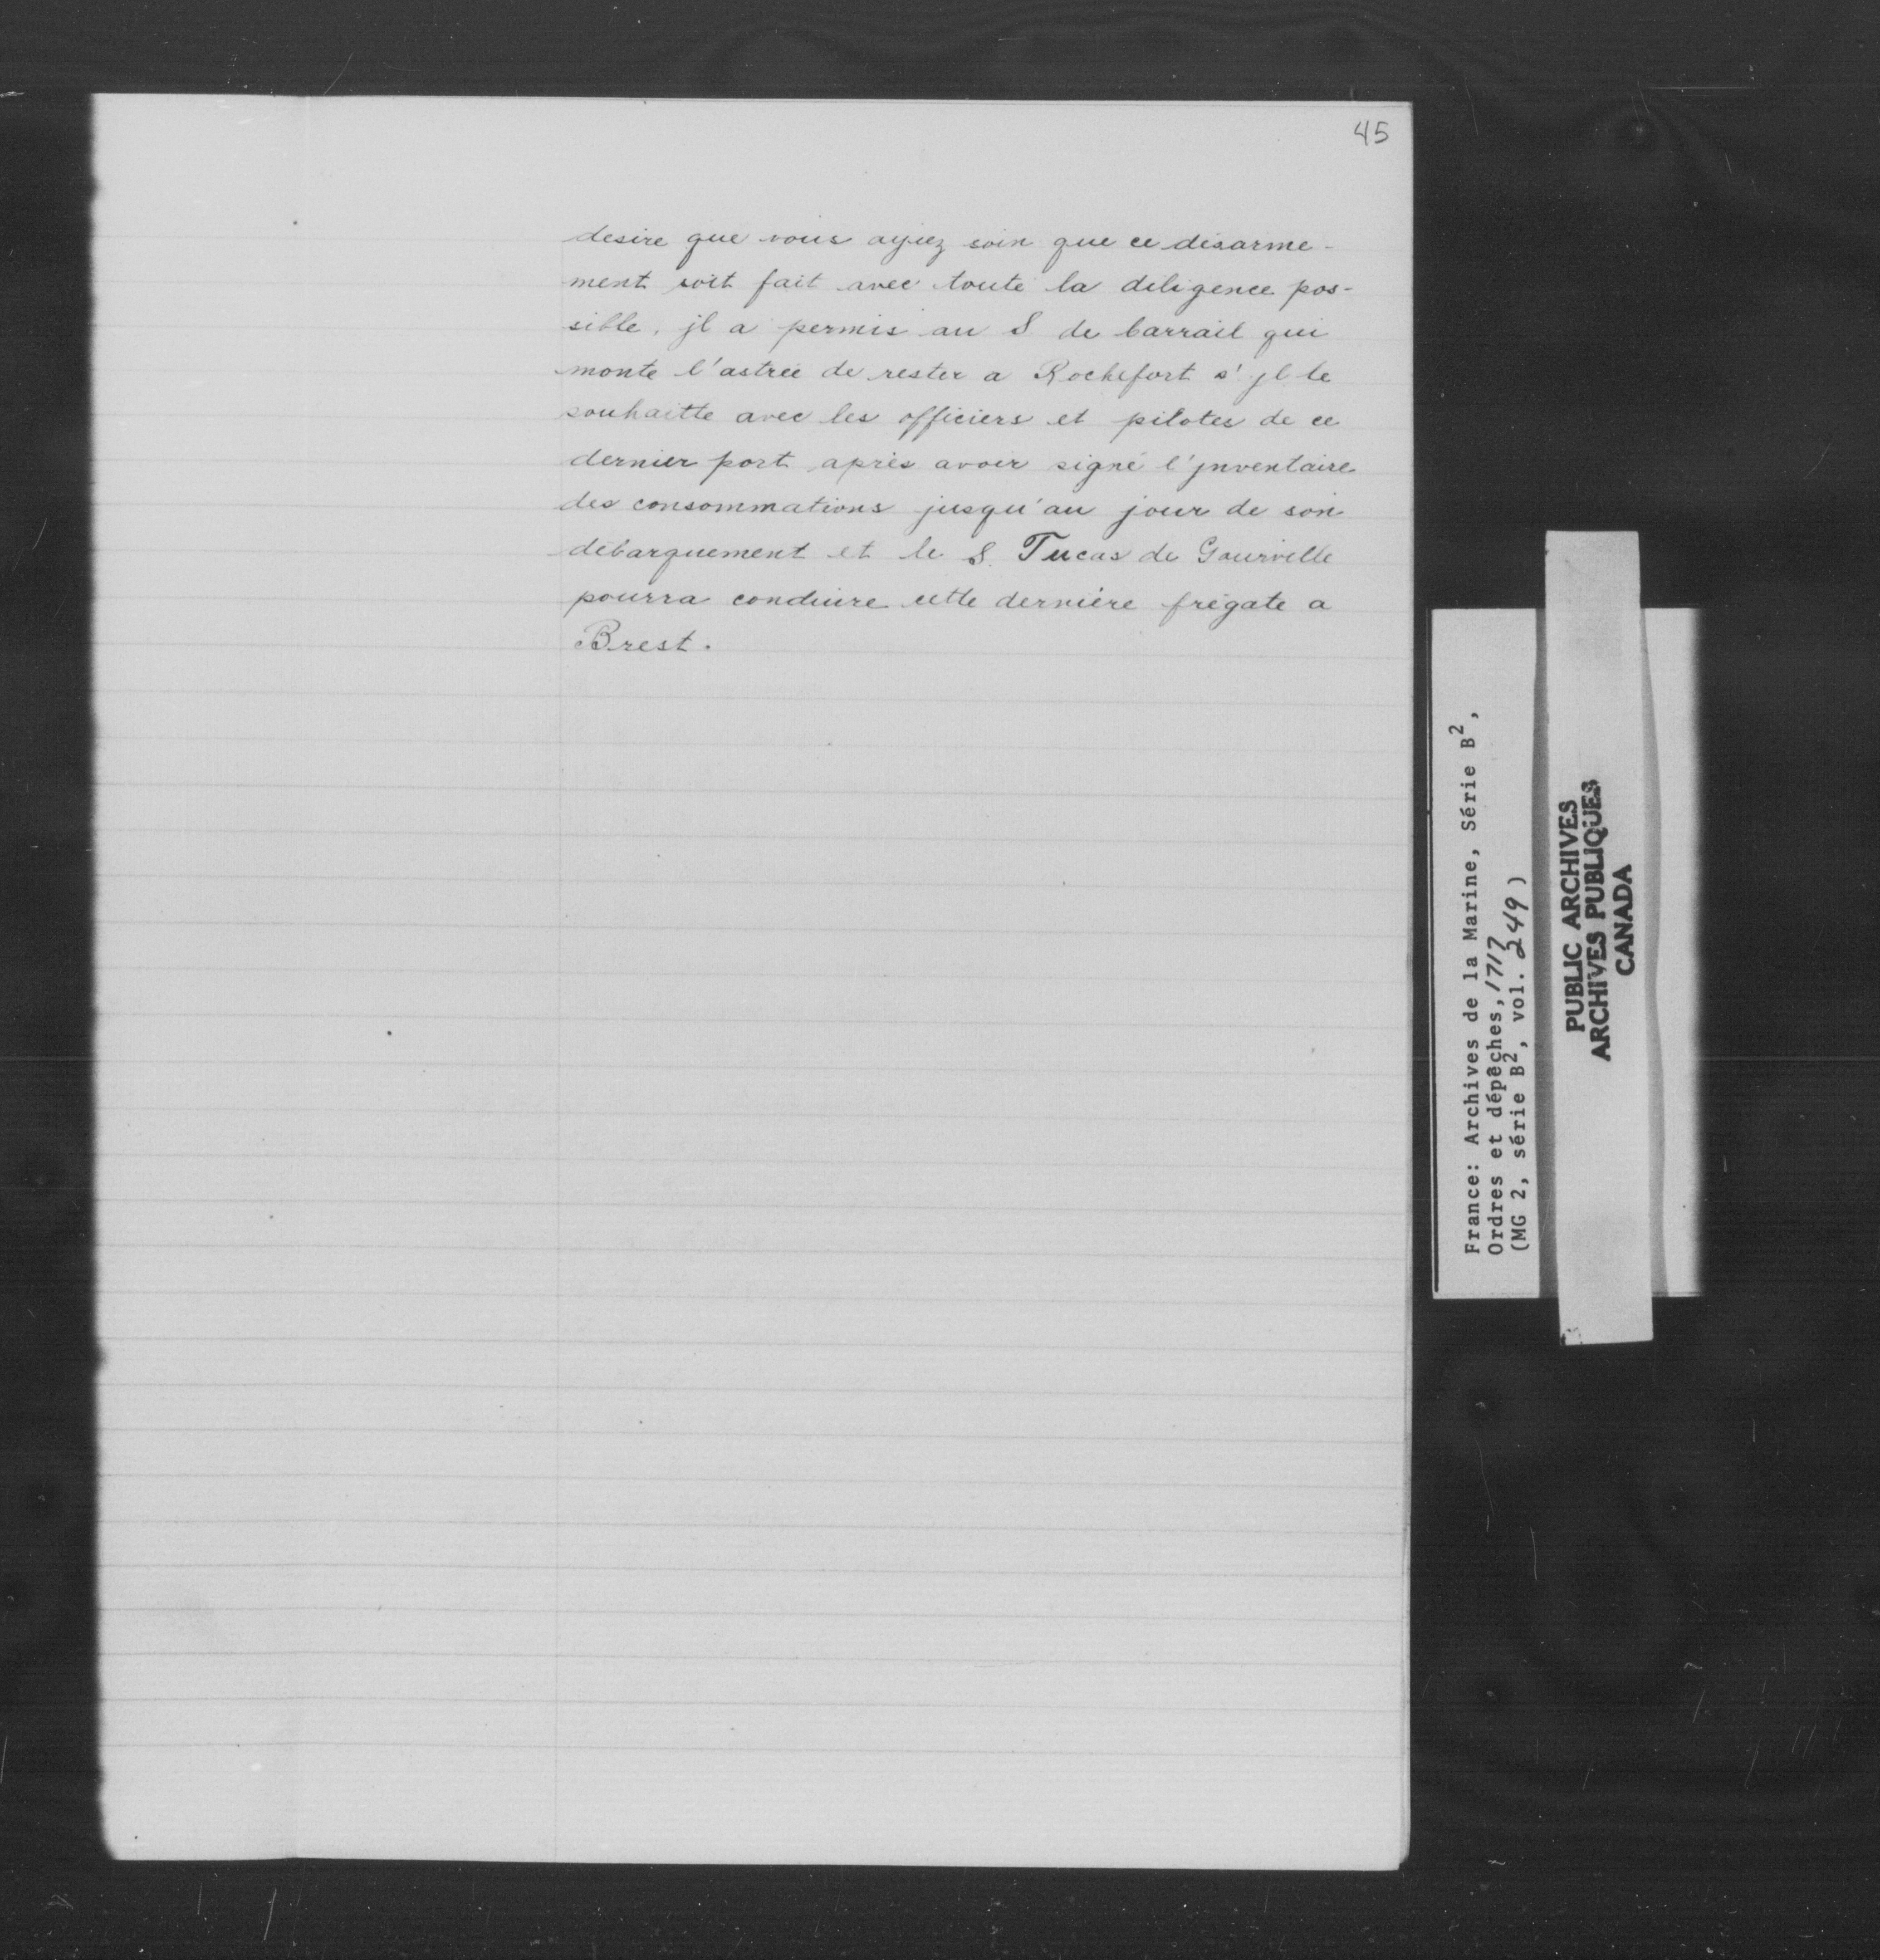 45
desire que vous ayiez soin que ce désarme-
ment soit fait avec toute la diligence pos-
sible, jl a permis au S. de barrail qui
monte l'astrée de rester a Rochefort s'jl le
souhaitte avec les officiers et pilotes de ce
dernier port après avoir signé l'jnventaire
des consommations jusqu'au jour de son
débarquement et le S. Tucas de Gourville
pourra conduire cette dernière frégate a
Brest.
France: Archives de la Marine, Série B2,
Ordres et dépêches, 1717
(MG 2, série B2, vol. 249)
PUBLIC ARCHIVES
ARCHIVES PUBLIQUES
CANADA